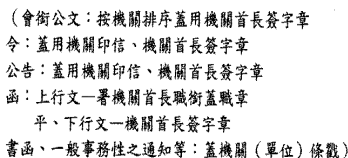 (會銜公文：按機關排序蓋用機關首長簽字章
令：蓋用機關印信、機關首長簽字章
公告：蓋用機關印信、機關首長簽字章
函：上行文—署機關首長職銜蓋職章
平、下行文—機關首長簽字章
書函、一般事務性之通知等：蓋機關（單位）條戳）